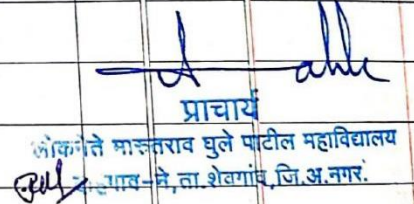 प्राचार्य
लोकनेते मारुतराव घुले पाटील महाविद्यालय
ने,ता.शेवगांव,जि.अ.नगर.